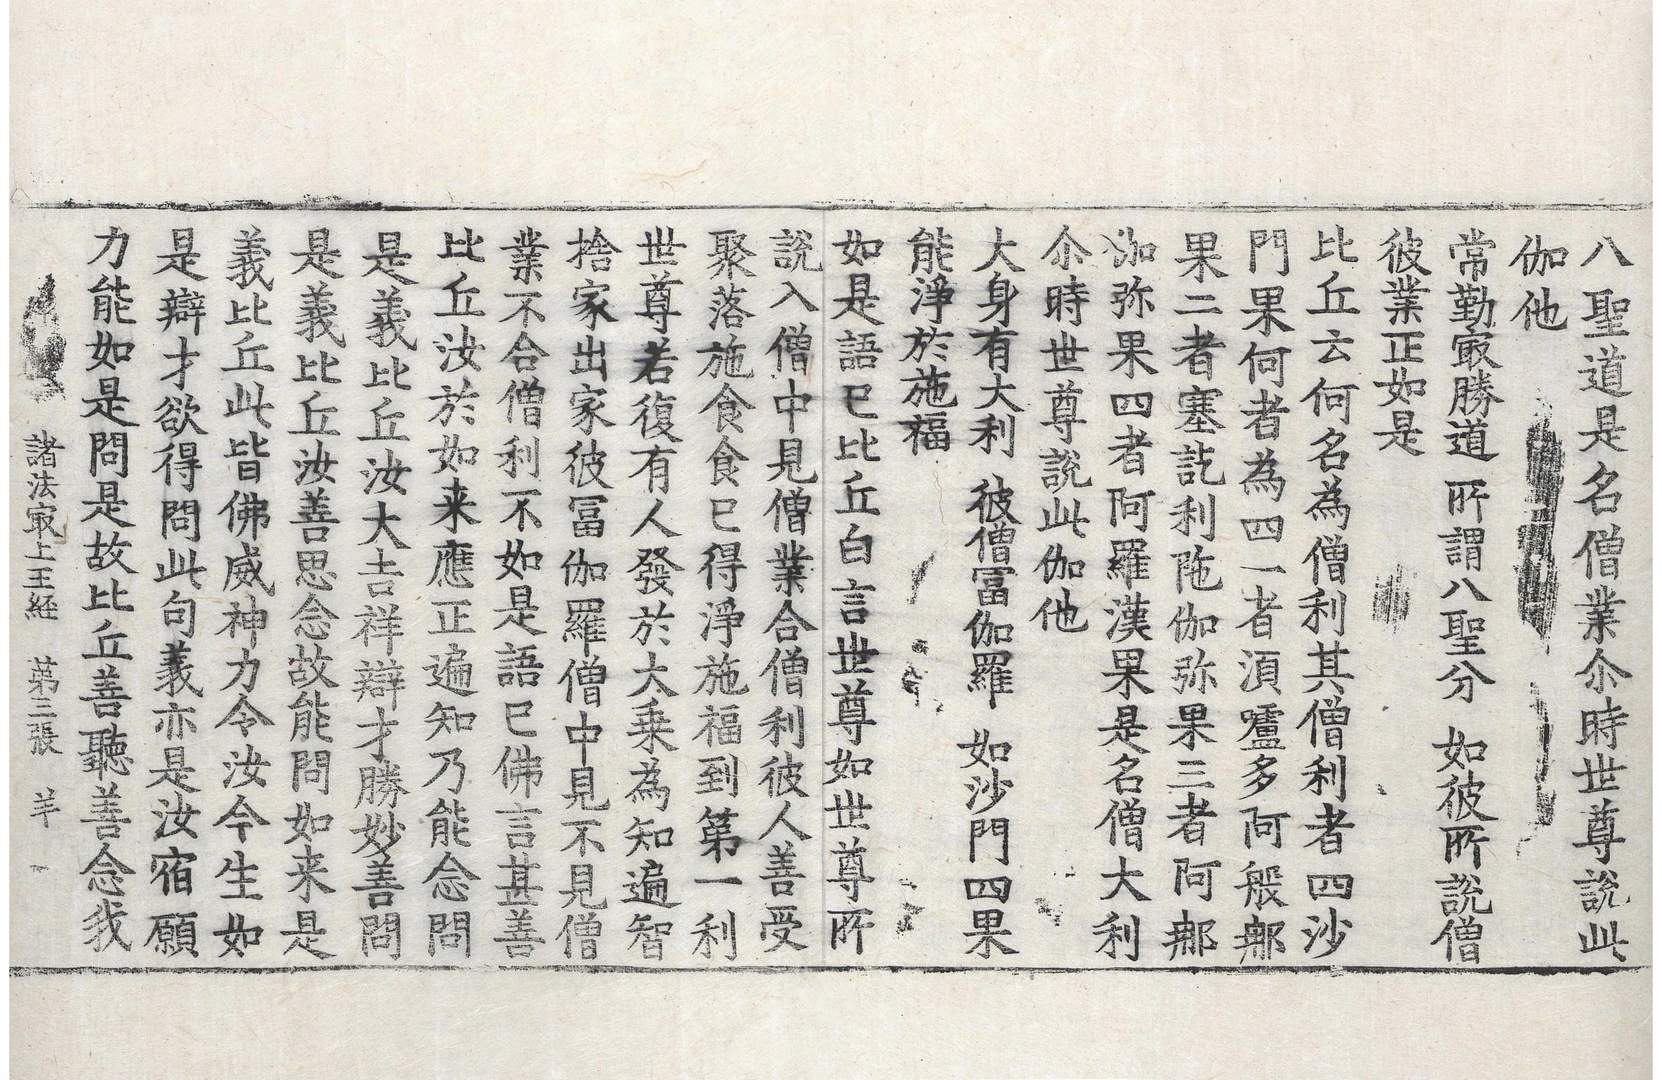 八聖道是名僧業尒時世尊說此
伽他
常勤㝡勝道 所謂八聖分 如彼所說僧
彼業正如是
比丘云何名為僧利其僧利者四沙
門果何者為四一者湏嚧多阿般那
果二者塞訖利陁伽弥果三者阿那
伽弥果四者阿羅漢果是名僧大利
尒時世尊說此伽他
大身有大利 彼僧冨伽羅 如沙門四果
能淨於施福
如是語已比丘白言世尊如世尊所
說入僧中見僧業合僧利彼人善受
聚落施食食已得淨施福到第一利
世尊若復有人發於大乘為知遍智
捨家出家彼冨伽羅僧中見不見僧
業不合僧利不如是語已佛言甚善
比丘汝於如来應正遍知乃能念問
是義比丘汝大吉祥辯才勝妙善問
是義比丘汝善思念故能問如来是
義比丘此皆佛威神力令汝今生如
是辯才欲得問此句義亦是汝宿願
力能如是問是故比丘善聽善念我
諸法㝡上王經 第三張 羊